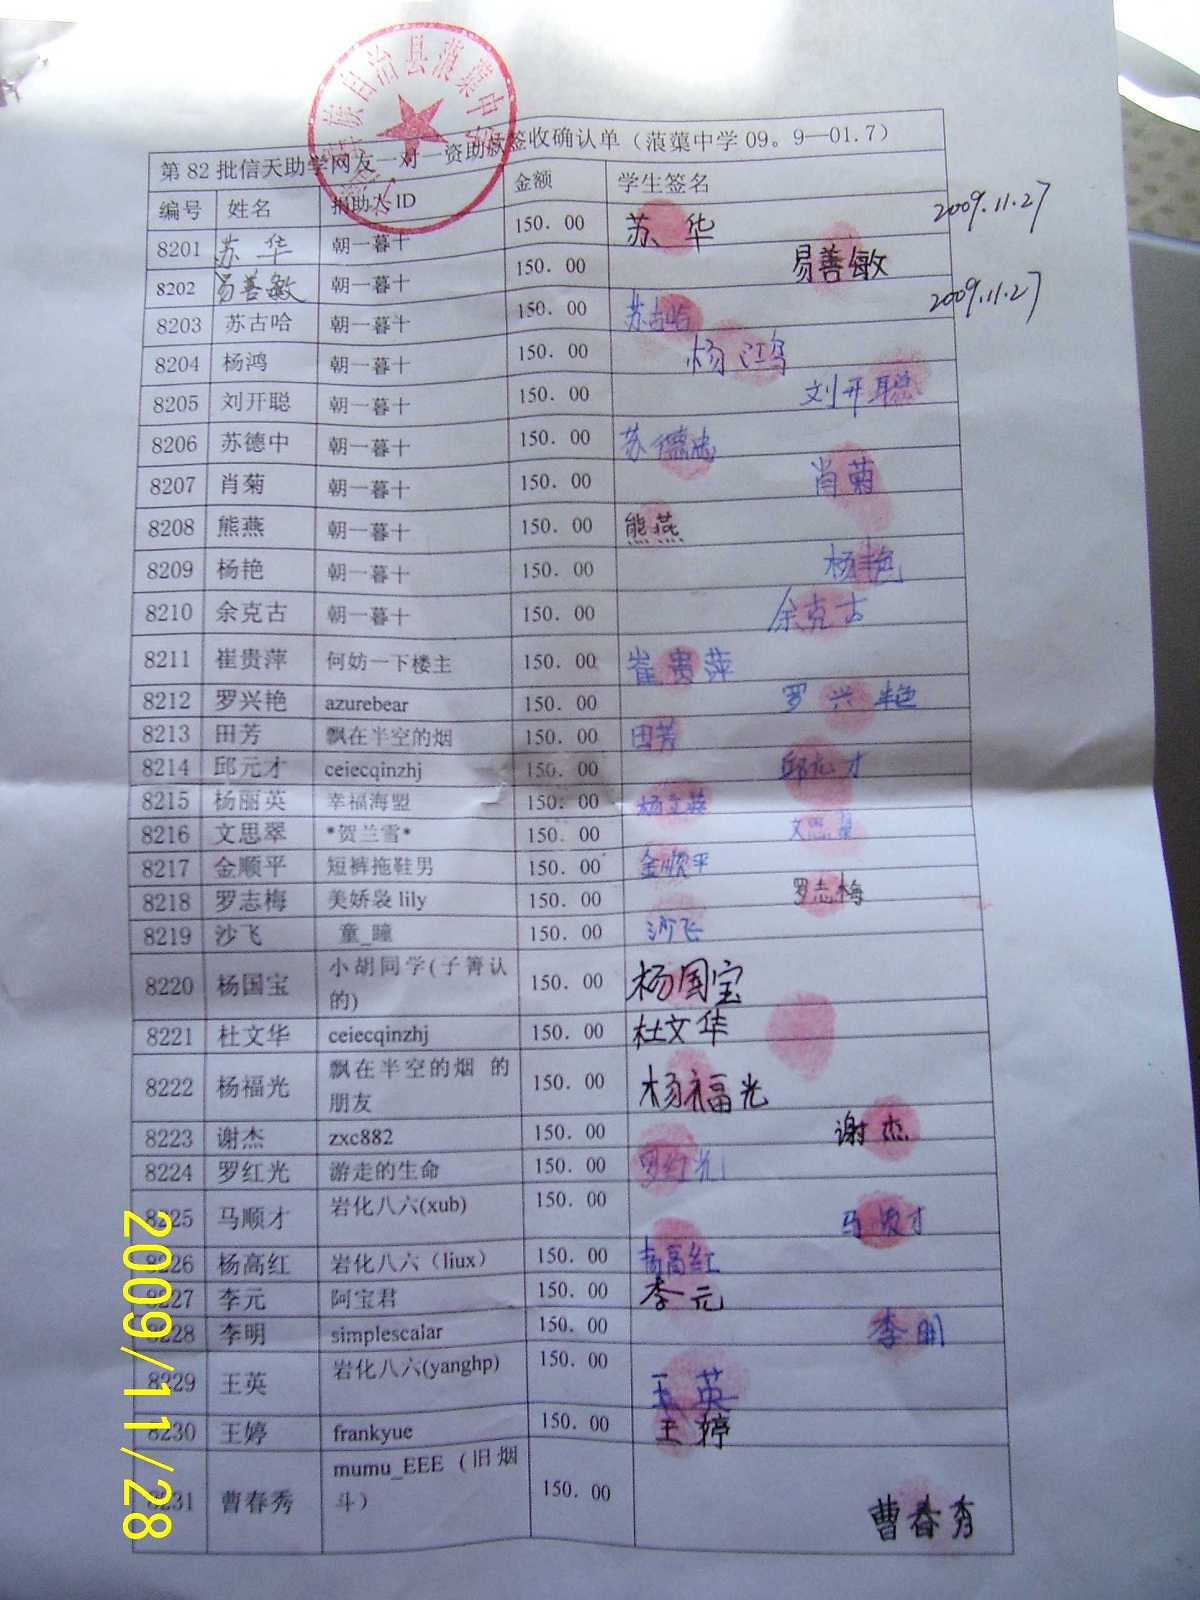 第82批信天助学网友一对一资助款签收确认单（蒗蕖中学09。9—01.7）
编号 姓名 捐助人ID 金额 学生签名
8201 苏华 朝一暮十 150.00 苏华 2009.11.27
8202 易善敏 朝一暮十 150.00 易善敏
8203 苏古哈 朝一暮十 150.00 苏古哈 2009.11.27
8204 杨鸿 朝一暮十 150.00 杨鸿
8205 刘开聪 朝一暮十 150.00 刘开聪
8206 苏德中 朝一暮十 150.00 苏德忠
8207 肖菊 朝一暮十 150.00 肖菊
8208 熊燕 朝一暮十 150.00 熊燕
8209 杨艳 朝一暮十 150.00 杨艳
8210 余克古 朝一暮十 150.00 余克古
8211 崔贵萍 何妨一下楼主 150.00 崔贵萍
8212 罗兴艳 azurebear 150.00 罗兴艳
8213 田芳 飘在半空的烟 150.00 田芳
8214 邱元才 ceiecqinzhj 150.00 邱元才
8215 杨丽英 幸福海盟 150.00 杨立英
8216 文思翠 *贺兰雪* 150.00 文思翠
8217 金顺平 短裤拖鞋男 150.00 金顺平
8218 罗志梅 美娇袅lily 150.00 罗志梅
8219 沙飞 童_瞳 150.00 沙飞
8220 杨国宝 小胡同学(子箐认的) 150.00 杨国宝
8221 杜文华 ceiecqinzhj 150.00 杜文华
8222 杨福光 飘在半空的烟 的朋友 150.00 杨福光
8223 谢杰 zxc882 150.00 谢杰
8224 罗红光 游走的生命 150.00 罗红光
8225 马顺才 岩化八六(xub) 150.00 马顺才
8226 杨高红 岩化八六（liux） 150.00 杨高红
8227 李元 阿宝君 150.00 李元
8228 李明 simplescalar 150.00 李明
8229 王英 岩化八六(yanghp) 150.00 王英
8230 王婷 frankyue 150.00 王婷
8231 曹春秀 mumu_EEE（旧烟斗） 150.00 曹春秀
2009/11/28